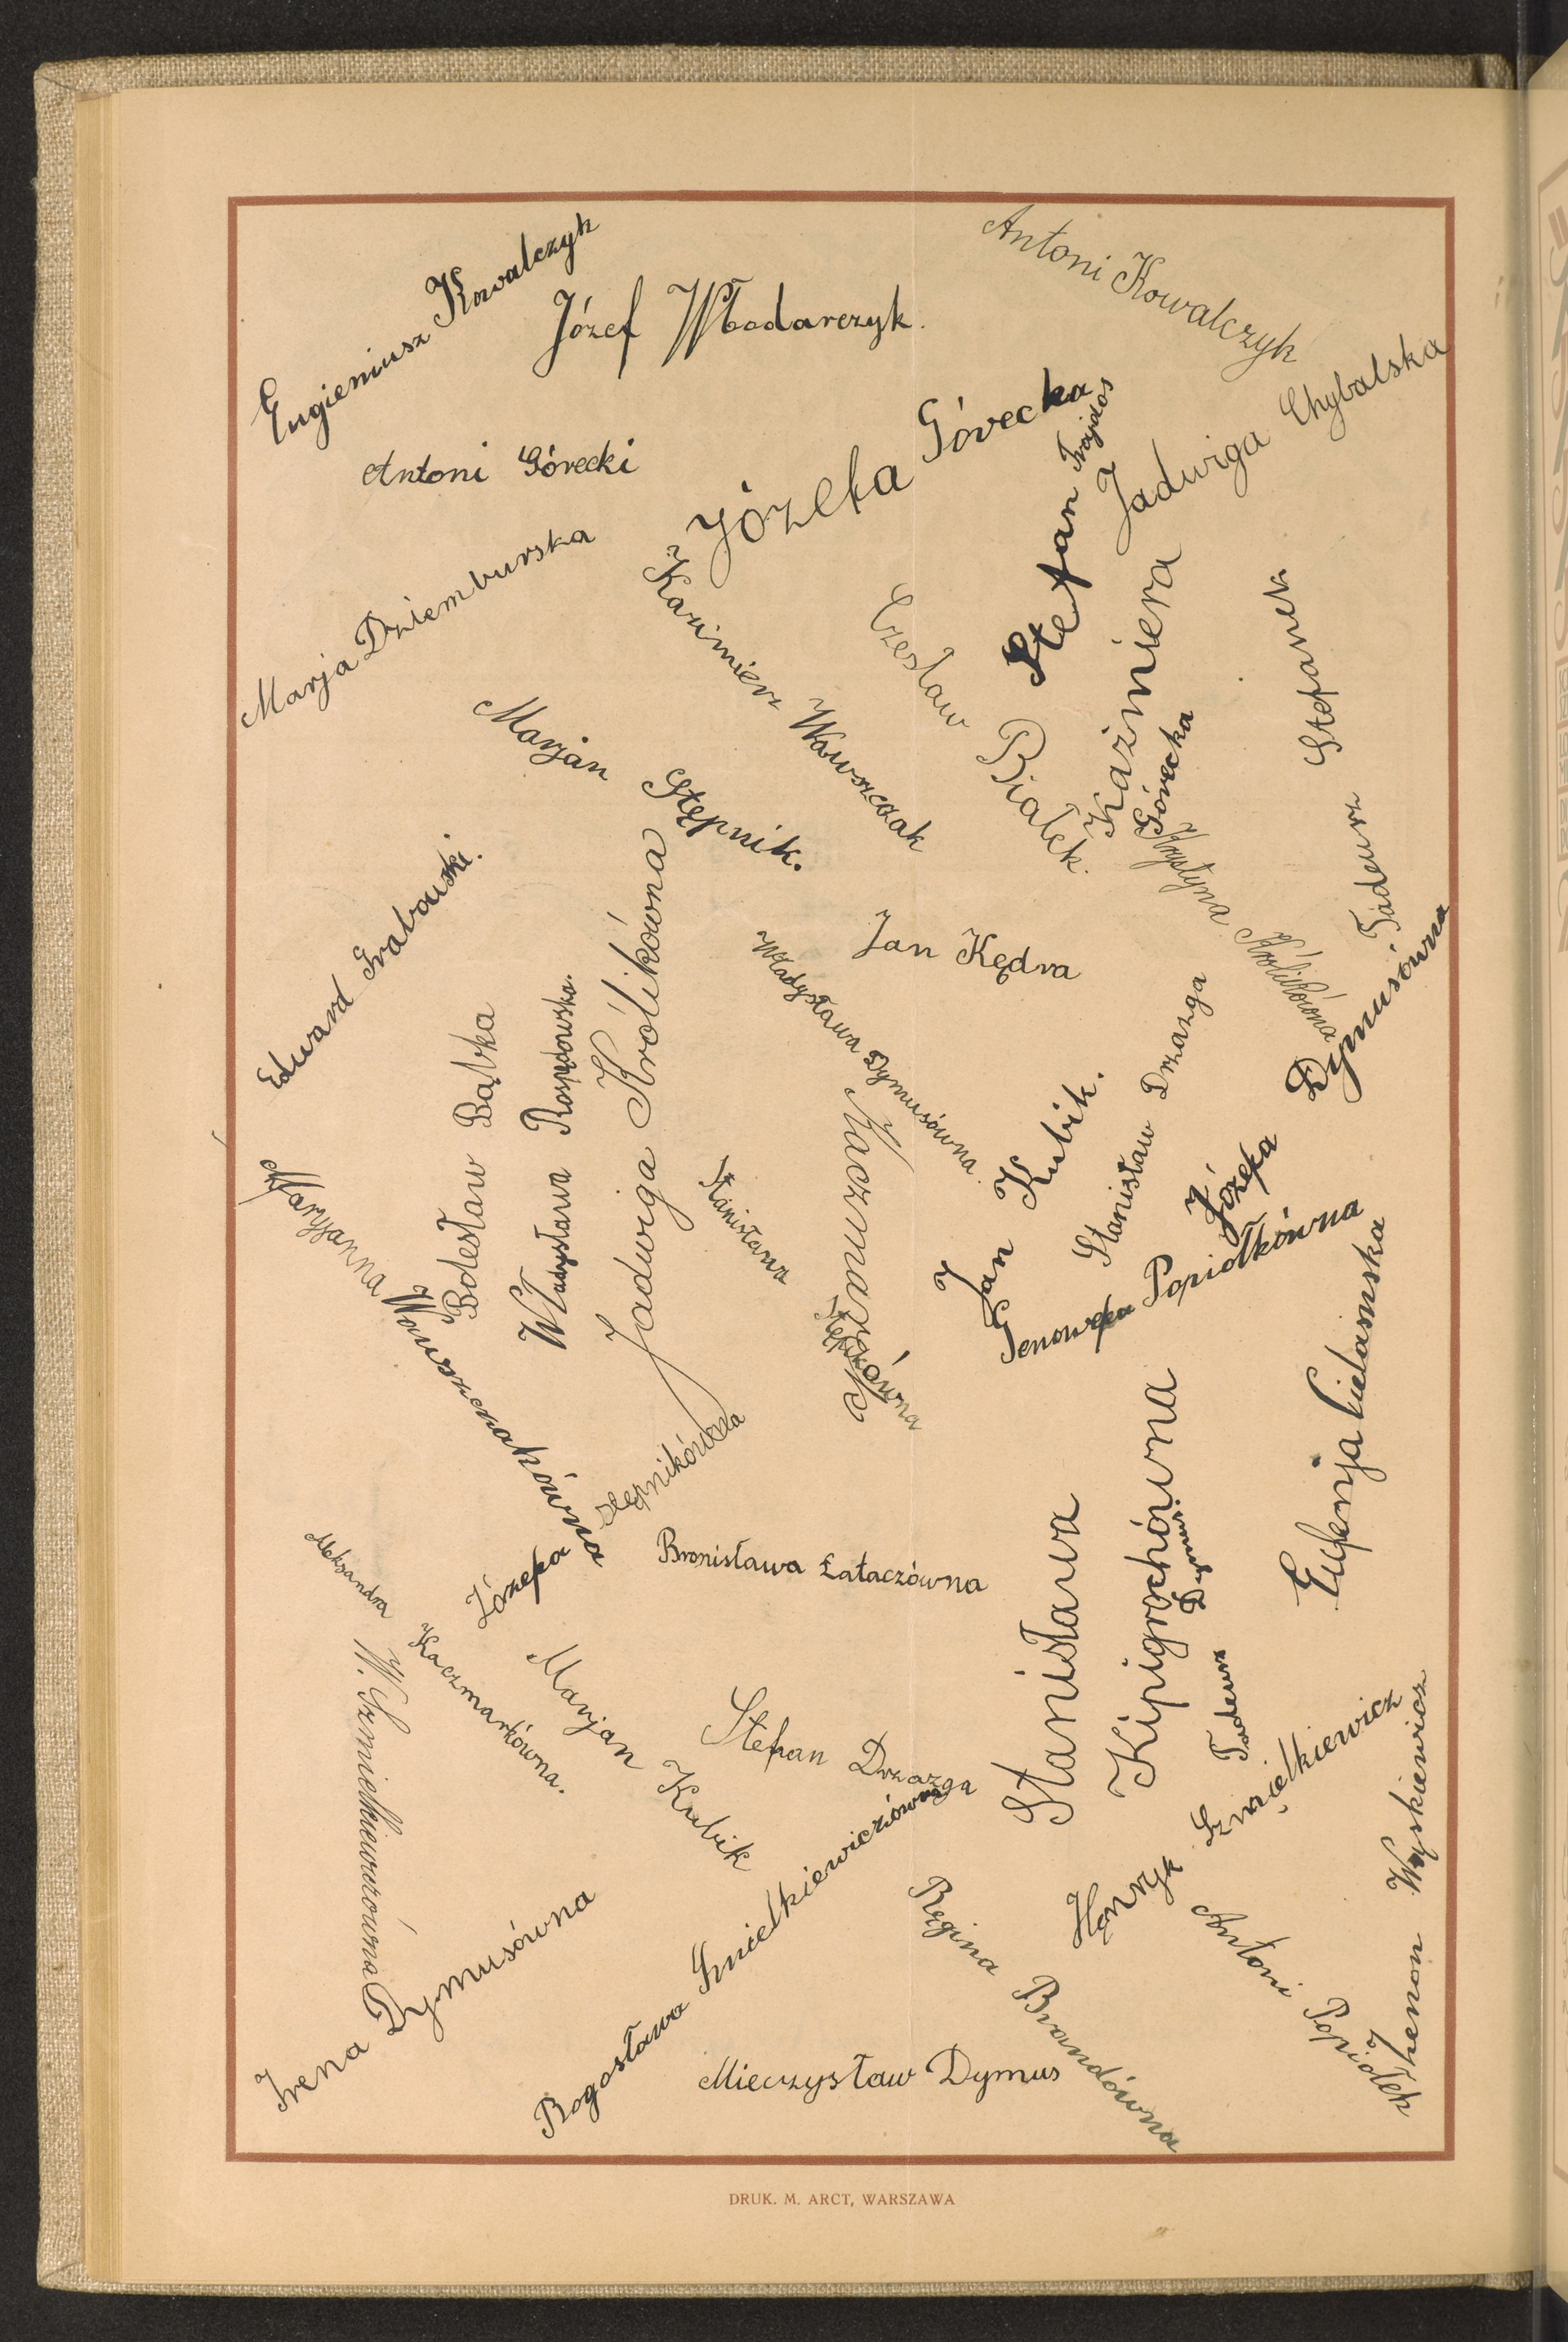 Eugieniusz Kowalczyk
Józef Włodarczyk.
Antoni Kowalczyk
Antoni Górecki
Józefa Górecka
Stefan Trajdos
Jadwiga Chybalska
Marja Dziemburska
Kazimierz Wawrzczak
Czesław Białek.
Kaźmiera
Górecka
Tadeusz Stefanek
Marjan Stępnik.
Krystyna Królikówna
Edward Grabowski.
Jan Kędra
Władysława Dymusówna
Józefa Dymusówna
Bolesław Bąbka
Władysława Rospędowska.
Jadwiga Królikówna
Kaczmarek
Jan Kubik.
Stanisław Drzazga
Maryjanna Wawrzczakówna
Stanisława
Stępikówna
Genowefa Popiołkówna
Eufenja Cielamska
Józefa Stępnikówna
Bronisława Łataczówna
Stanisława
Kipigrochówna
Tadeusz Dymus.
Aleksandra Kaczmarkówna.
W. Szmielkiewiczówna
Marjan Kubik
Stefan Drzazga
Henryk Szmielkiewicz
Zienon Wyskiewicz
Irena Dymusówna
Bogosława Szmielkiewiczówna
Regina Brandówna
Antoni Popiołek
Mieczysław Dymus
DRUK. M. ARCT, WARSZAWA